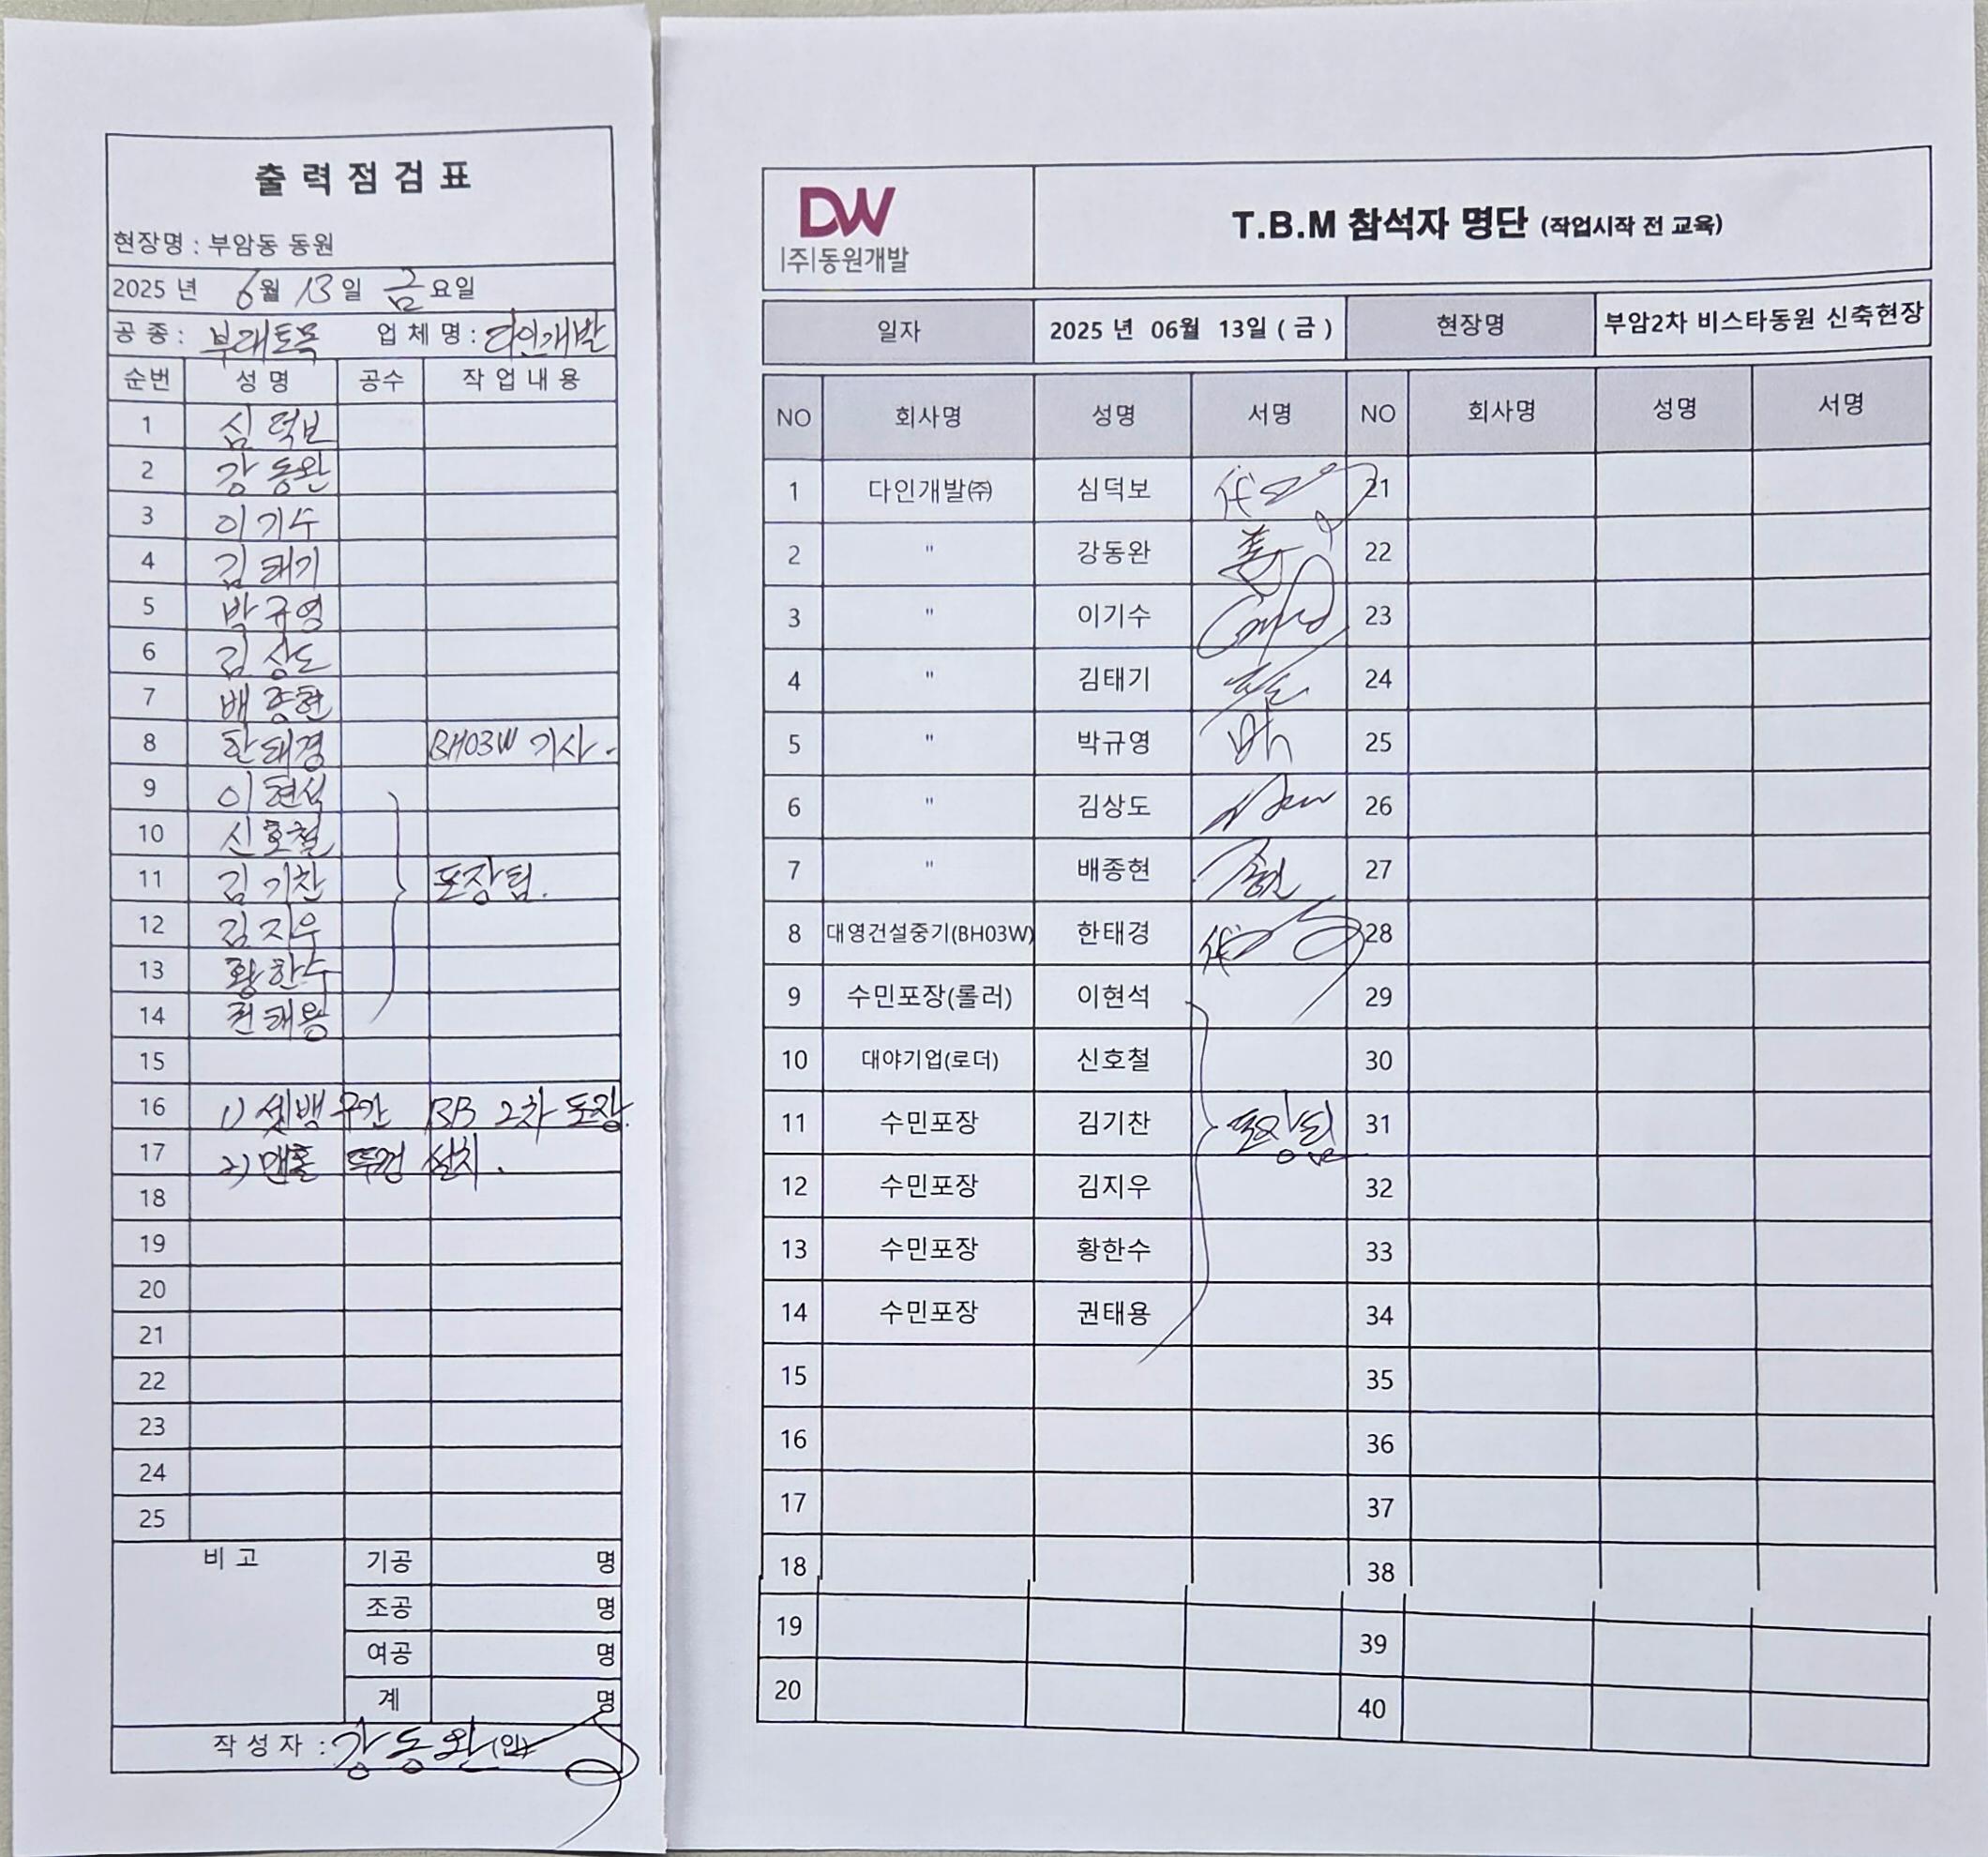 출 력 점 검 표
현장명 : 부암동 동원
2025 년 6월 13일 금요일
공 종 : 부대토목 업 체 명 : 다인개발
순번 성 명 공수 작 업 내 용
1 심덕보
2 강동완
3 이기수
4 김태기
5 박규영
6 김상도
7 배종현
8 한태경 BH03W 기사.
9 이현석
10 신호철
11 김기찬 포장팀.
12 김지우
13 황한수
14 권태용
15
16 1) 셋백 구간 BB 2차 포장.
17 2) 맨홀 뚜껑 설치.
18
19
20
21
22
23
24
25
비 고 기공 명
조공 명
여공 명
계 명
작 성 자 : 강동완 (인)
DW
|주|동원개발
T.B.M 참석자 명단 (작업시작 전 교육)
일자 2025 년 06월 13일 ( 금 ) 현장명 부암2차 비스타동원 신축현장
NO 회사명 성명 서명 NO 회사명 성명 서명
1 다인개발㈜ 심덕보 21
2 " 강동완 22
3 " 이기수 23
4 " 김태기 24
5 " 박규영 25
6 " 김상도 26
7 " 배종현 27
8 대영건설중기(BH03W) 한태경 28
9 수민포장(롤러) 이현석 29
10 대야기업(로더) 신호철 30
11 수민포장 김기찬 포장팀 31
12 수민포장 김지우 32
13 수민포장 황한수 33
14 수민포장 권태용 34
15 35
16 36
17 37
18 38
19 39
20 40